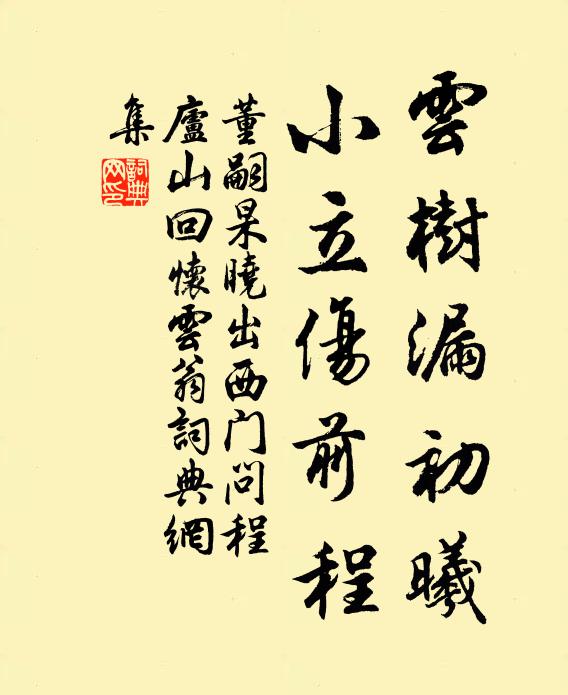 雲樹漏初曦
小立傷前程
董嗣杲曉出西门问程
廬山回懷雲翁詞典網
集
詞典
网印